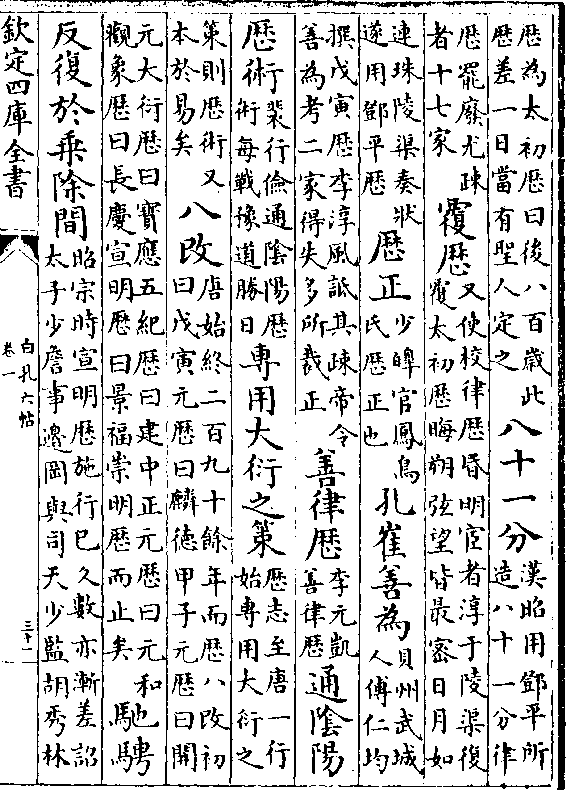 歴為太初歴曰後八百歲此歴差一日當有聖人定之八十一分漢昭用鄧平所造八十一分律
歴罷廢尤疎者十七家覆歴又使校律歴昏明宦者淳于陵渠復覆太初歴晦朔弦望皆最密日月如
連珠陵渠奏狀遂用鄧平歴歴正少皥官鳳鳥氏歴正也孔崔善為貝州武城人傅仁均
撰戊寅歴李淳風詆其疎帝令善為考二家得失多所裁正善律歴李元凱善律歴通隂陽
歴術裴行儉通隂陽歴術每戰豫道勝日専用大衍之策歴志至唐一行始専用大衍之
策則歴術又本於易矣八改唐始終二百九十餘年而歴八改初曰戊寅元歴曰麟德甲子元歴曰開
元大衍歴曰寶應五紀歴曰建中正元歴曰元和觀象歴曰長慶宣明歴曰景福崇明歴而止矣馳騁
反復於乗除間昭宗時宣明歴施行已久數亦漸差詔太子少詹事邉岡與司天少監胡秀林
欽定四庫全書
白孔六帖
卷一
三十一